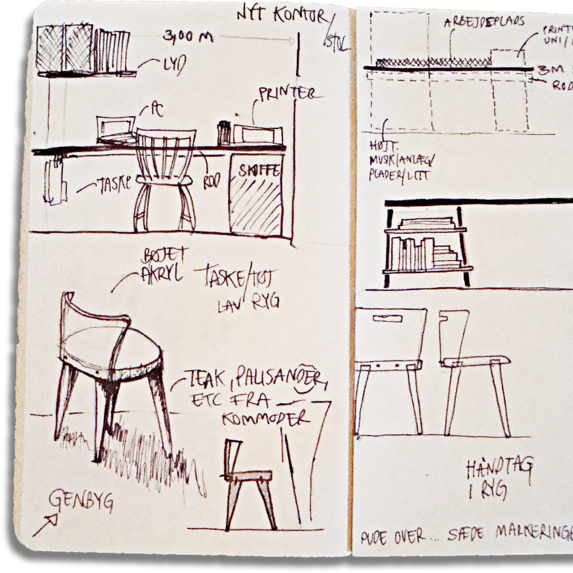 NYT KONTOR
/STOL
3,00 M
LYD
PC
PRINTER
TASKE
ROD
SKUFFE
BØJET
AKRYL
TASKE/TØJ
LAV RYG
TEAK, PALISANDER,
ETC FRA
KOMMODER
GENBYG
ARBEJDSPLADS
3M
ROD
HØJT.
MUSIKANLÆG/
PLADER/LITT
HÅNDTAG
I RYG
PUDE OVER... SÆDE MARKERINGE